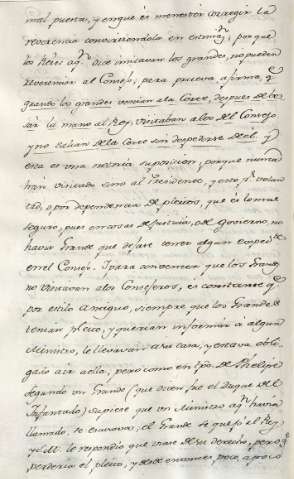 mal puesta, y en que es menester corregir la
reverencia convirtiendola en porque
los Reies aqn. dice imitavan los grandes, no pueden
reverenciar al Consejo; para prueva afirma, q
quando los grandes venian ala Corte, despues de be
sar la mano al Rey, visitaban alos del Consejo
y no salian dela Corte sin despedirse del: y
esta es una notoria suposicion, porque nunca
han visitado sino al Presidente, y esto pr. volun
tad, o por dependencia de pleitos, que es lo mas
seguro, pues en cosas de Justicia, o de govierno, no
havia Grande que dejase tener algun
en el Consejo. Y para convencer que los Grandes
no visitavan alos Consejeros, es constante q
por estilo Antiguo, siempre que los Grandes
tenian pleito, y querian informar a algun
Ministro, le llevavan a su casa, y estava obli
gado air aella, pero como en tpo. de Phelipe
segundo un Grande (que dicen fue el Duque del
Infantado) supiese que un Ministro aqn. havia
llamado se escusava; el Grande se quejó al Rey
y S.M. le respondio que usase de su derecho, pero q
perderia el pleito, y desde entonces poco apoco